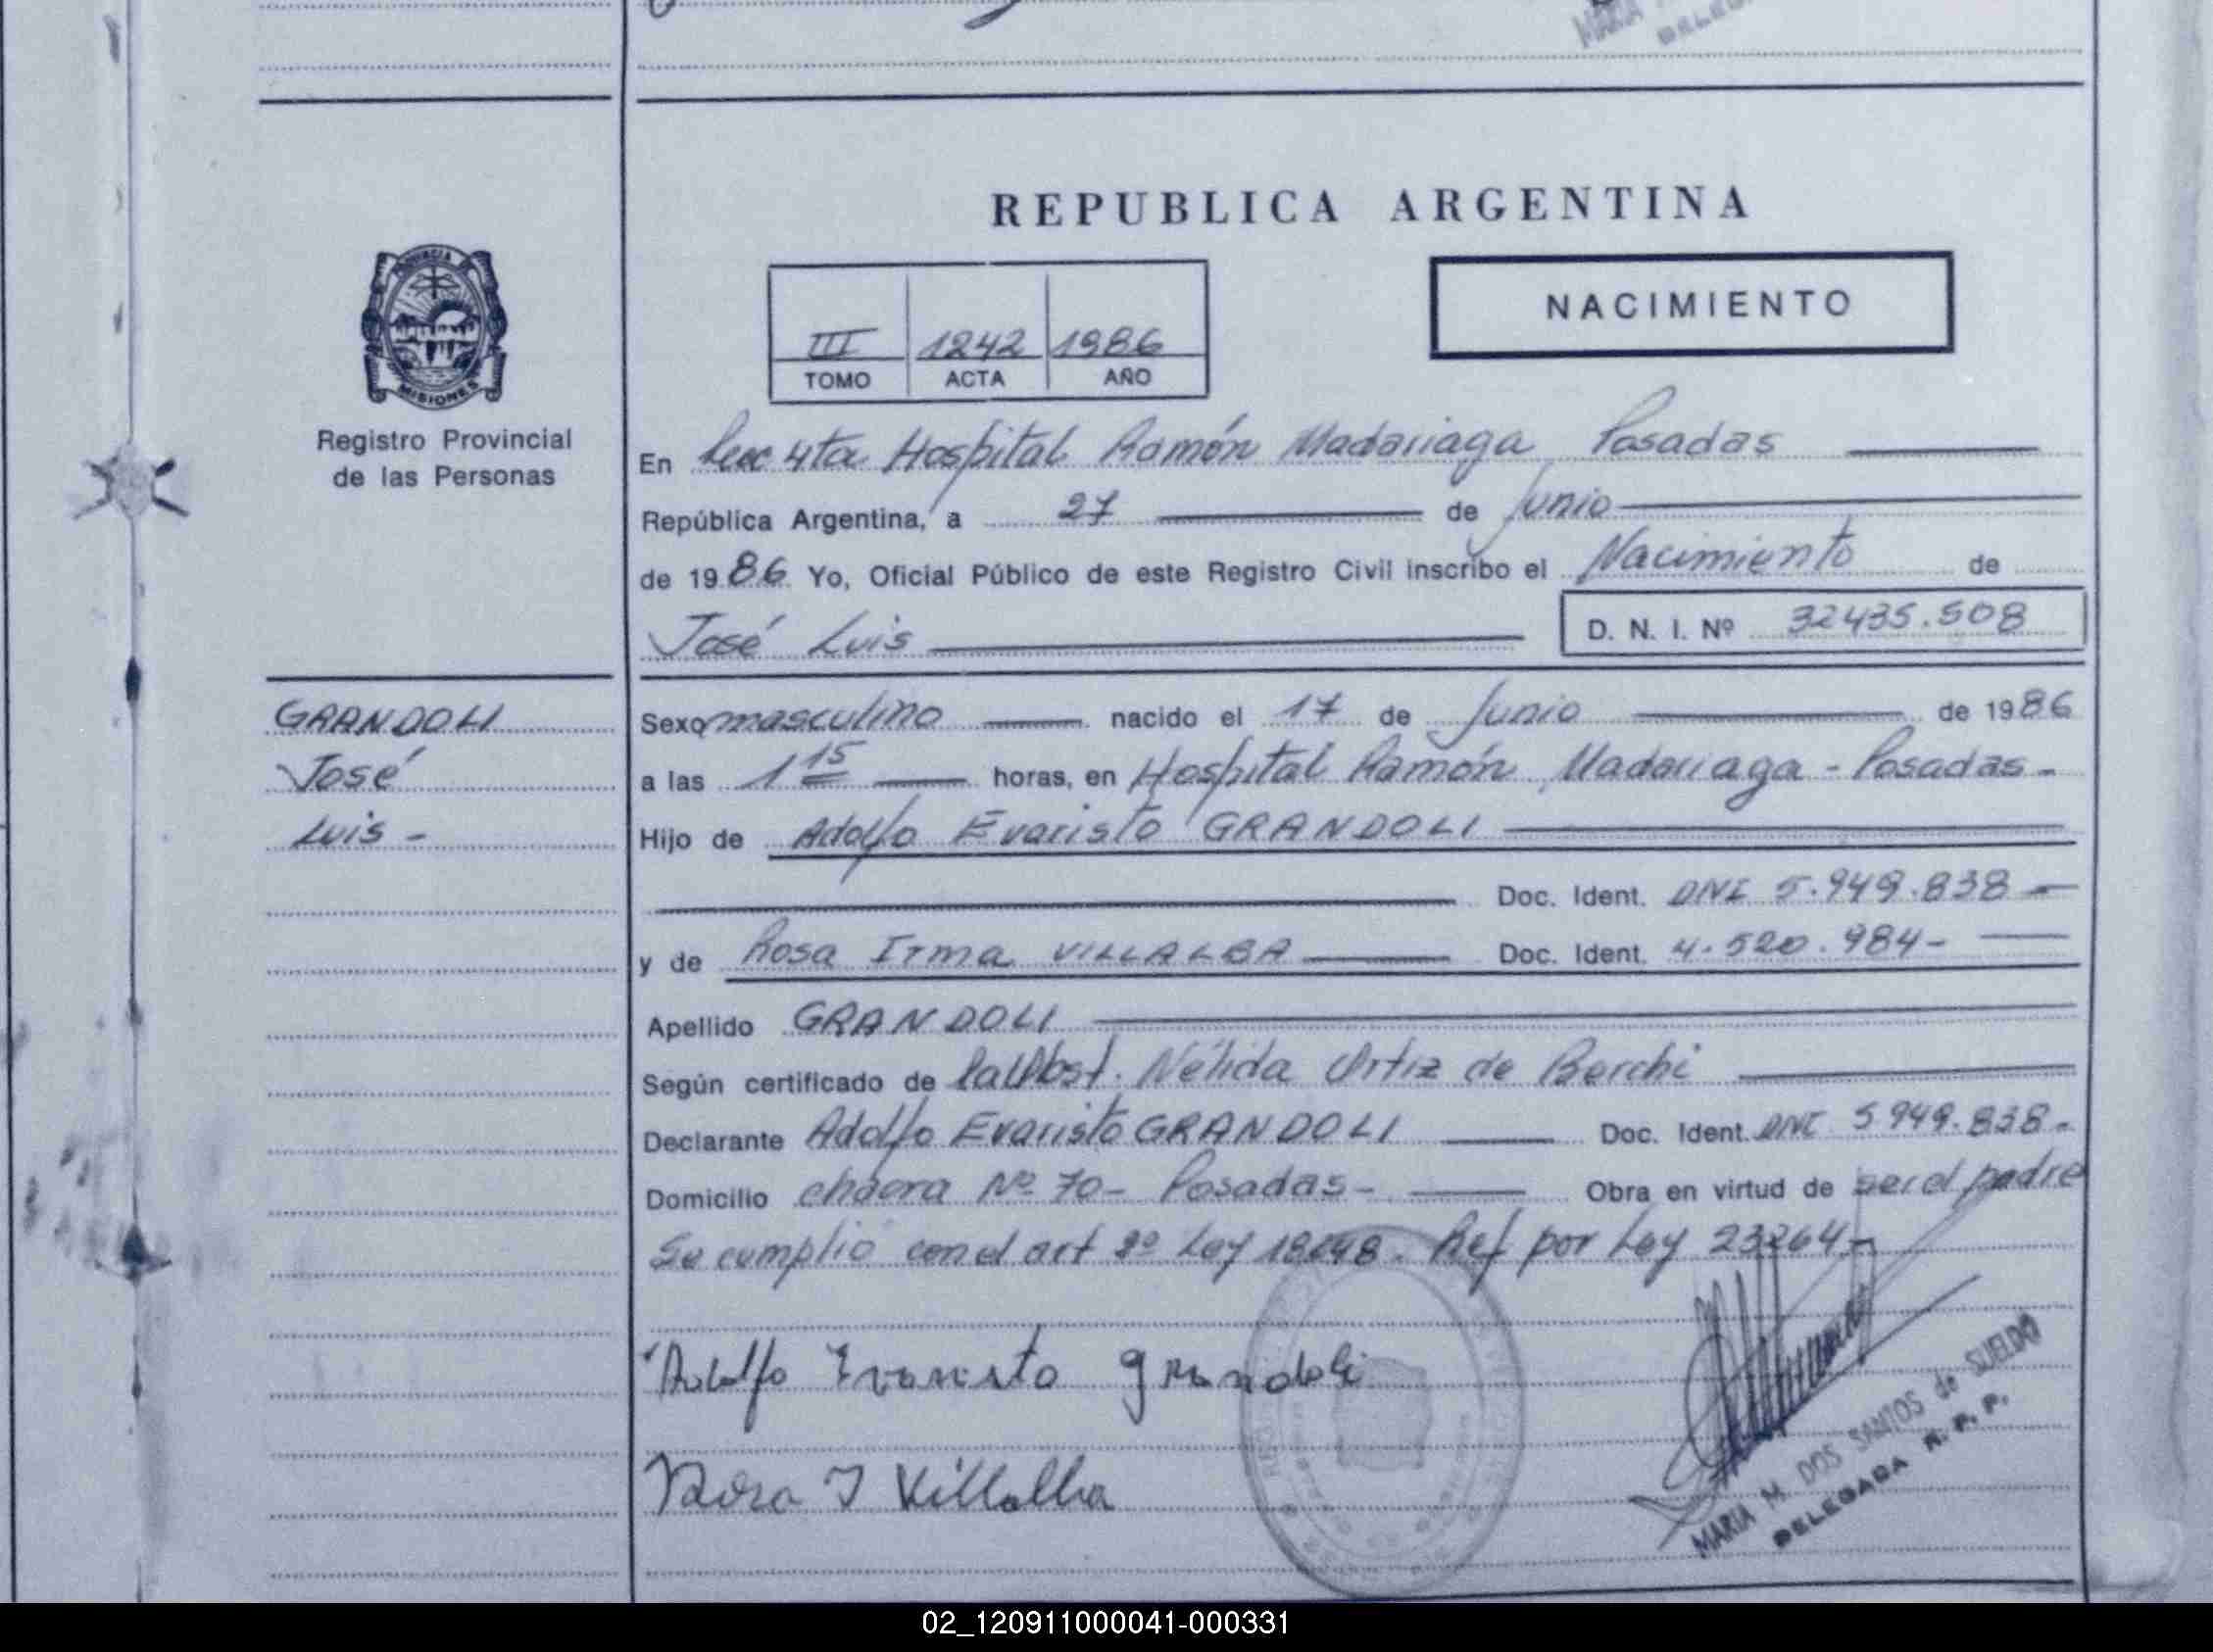 REPUBLICA ARGENTINA
PROVINCIA DE
MISIONES
Registro Provincial
de las Personas
NACIMIENTO
III 1242 1986
TOMO ACTA AÑO
En Secc 4ta Hospital Ramón Madariaga Posadas
República Argentina, a 27 de Junio
de 1986 Yo, Oficial Público de este Registro Civil inscribo el Nacimiento de
José Luis D. N. I. Nº 32435.508
GRANDOLI
José
Luis -
Sexo masculino nacido el 17 de Junio de 1986
a las 1 15 horas, en Hospital Ramón Madariaga - Posadas -
Hijo de Adolfo Evaristo GRANDOLI
Doc. Ident. DNI 5.949.838 -
y de Rosa Irma VILLALBA Doc. Ident. 4.520.984 -
Apellido GRANDOLI
Según certificado de Obst. Nélida Ortiz de Berchi
Declarante Adolfo Evaristo GRANDOLI Doc. Ident. DNI 5949.838 -
Domicilio chacra Nº 70 - Posadas - Obra en virtud de ser el padre
Se cumplió con el art Ley Ref por Ley 23264 -
Adolfo Evaristo Grandoli
Rosa I Villalba
MARIA M. DOS SANTOS de SUELDO
DELEGADA R. P. P.
02_120911000041-000331